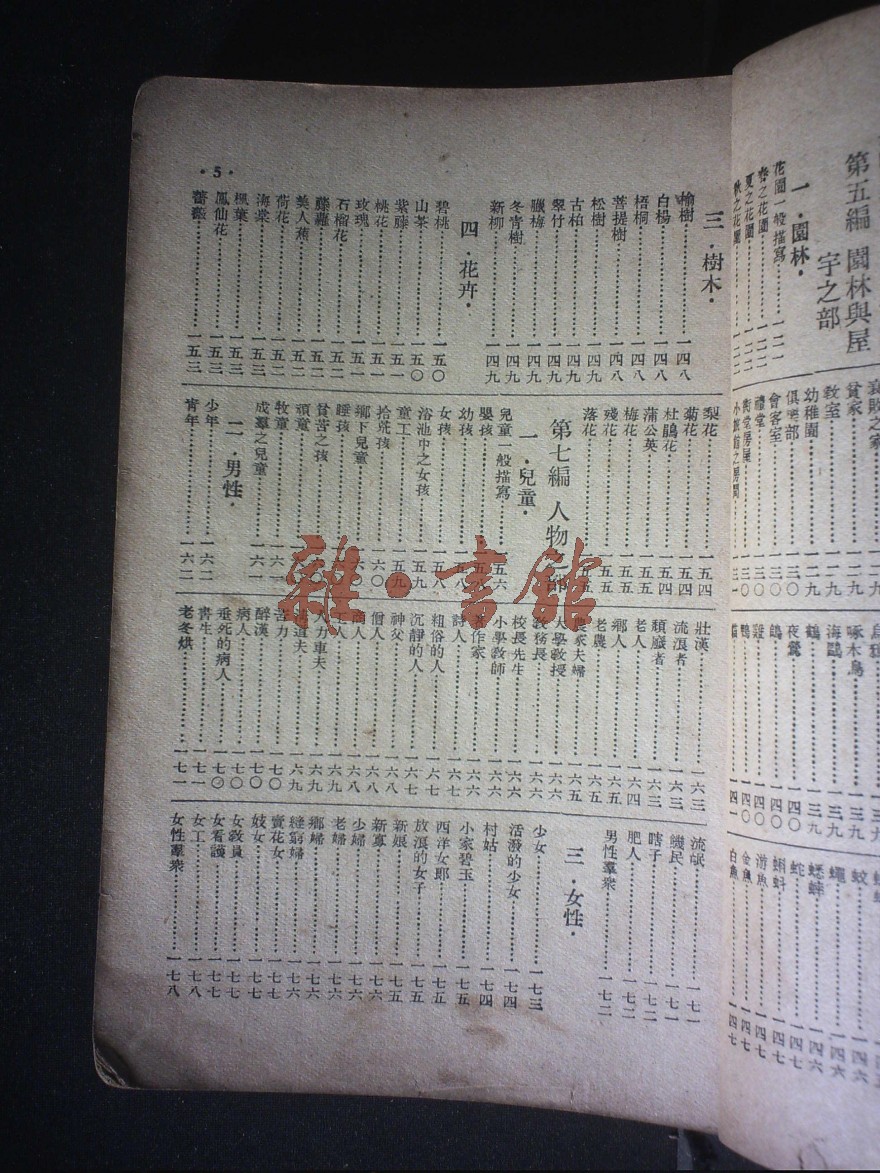 第五編 園林與屋
宇之部
一．園林．
花園一般描寫……一二一
春之花園……一二一
夏之花園……一二二
貧家
教室……一二九
幼稚園……一二九
俱樂部……一三〇
會客室……一三〇
禮堂……一三〇
啄木鳥……一三九
鶴……一三九
海鷗……一三九
夜鶯……一四〇
鴿……一四〇
蚊……一四六
蠅……一四六
蟋蟀……一四六
蛇……一四七
蝌蚪……一四七
游魚……一四七
金魚……一四七
白魚……一四七
·5·
三．樹木．
榆樹……一四八
白楊……一四八
梧桐……一四八
菩提樹……一四八
松樹……一四九
古柏……一四九
翠竹……一四九
臘梅……一四九
冬青樹……一四九
新柳……一四九
四．花卉．
碧桃……一五〇
山茶……一五〇
紫藤……一五一
桃花……一五一
玫瑰……一五一
石榴花……一五二
藤蘿……一五二
美人蕉……一五二
荷花……一五二
海棠……一五三
楓葉……一五三
鳳仙花……一五三
薔薇……一五三
梨花……一五四
菊花……一五四
杜鵑花……一五四
蒲公英……一五五
梅花……一五五
殘花……一五五
落花……一五五
第七編 人物之部
一．兒童．
兒童一般描寫……一五六
嬰孩……一五八
幼孩……一五八
女孩……一五八
浴池中之女孩……一五九
童工……一五九
拾荒孩……一六〇
鄉下兒童……一六〇
睡孩
貧苦之孩
頑童
牧童……一六一
成羣之兒童……一六一
二．男性．
少年……一六一
青年……一六二
壯漢……一六三
流浪者……一六三
頹廢者……一六三
老人……一六四
鄉人……一六五
老農……一六五
農家夫婦……一六五
大學教授……一六六
教務長……一六六
校長先生……一六六
小學教師……一六六
著作家……一六六
詩人……一六七
粗俗的人……一六七
沉靜的人……一六七
神父……一六八
僧人……一六八
商人……一六八
工人……一六九
人力車夫……一六九
清道夫……一六九
苦力……一七〇
醉漢……一七〇
病人……一七〇
垂死的病人……一七〇
書生……一七一
老冬烘……一七一
流氓……一七一
饑民……一七一
瞎子……一七二
肥人……一七二
男性羣衆……一七二
三．女性．
少女……一七三
活潑的少女……一七四
村姑……一七四
小家碧玉……一七五
西洋女郎……一七五
放浪的女子……一七五
新娘……一七五
新寡……一七六
少婦……一七六
老婦……一七六
鄉婦……一七六
縫窮婦……一七六
賣花女……一七七
妓女……一七七
女教員……一七七
女看護……一七七
女工……一七八
女性羣衆……一七八
雜·書館